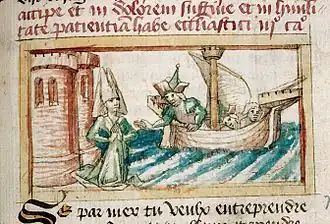 accipe et in dolorem sustine et in humili
tate patientiam habe ecclesiastici ii° ca°
Se par mer tu veulx entreprendre